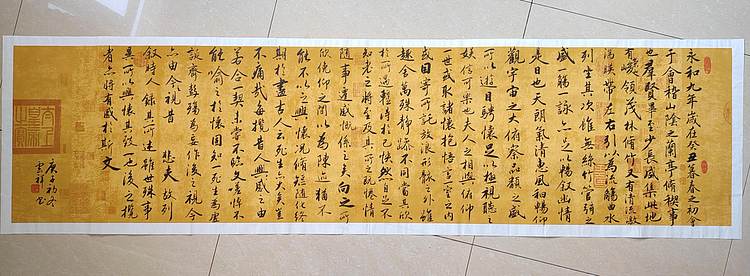 永和九年歲在癸丑暮春之初會
于會稽山陰之蘭亭脩稧事
也羣賢畢至少長咸集此地
有峻領茂林脩竹又有清流激
湍暎帶左右引以為流觴曲水
列坐其次雖無絲竹管弦之
盛一觴一詠亦足以暢叙幽情
是日也天朗氣清惠風和暢仰
觀宇宙之大俯察品類之盛
所以遊目騁懷足以極視聽之
娛信可樂也夫人之相與俯仰
一世或取諸懷抱悟言一室之內
或因寄所託放浪形骸之外雖
趣舍萬殊靜躁不同當其欣
於所遇蹔得於己快然自足不
知老之將至及其所之既惓情
隨事遷感慨係之矣向之所
欣俛仰之間以為陳迹猶不
能不以之興懷況脩短隨化終
期於盡古人云死生亦大矣豈
不痛哉每攬昔人興感之由
若合一契未嘗不臨文嗟悼不
能喻之於懷固知一死生為虛
誕齊彭殤為妄作後之視今
亦由今視昔 悲夫故列
叙時人錄其所述雖世殊事
異所以興懷其致一也後之攬
者亦將有感於斯文
庚子初冬
雲祥書